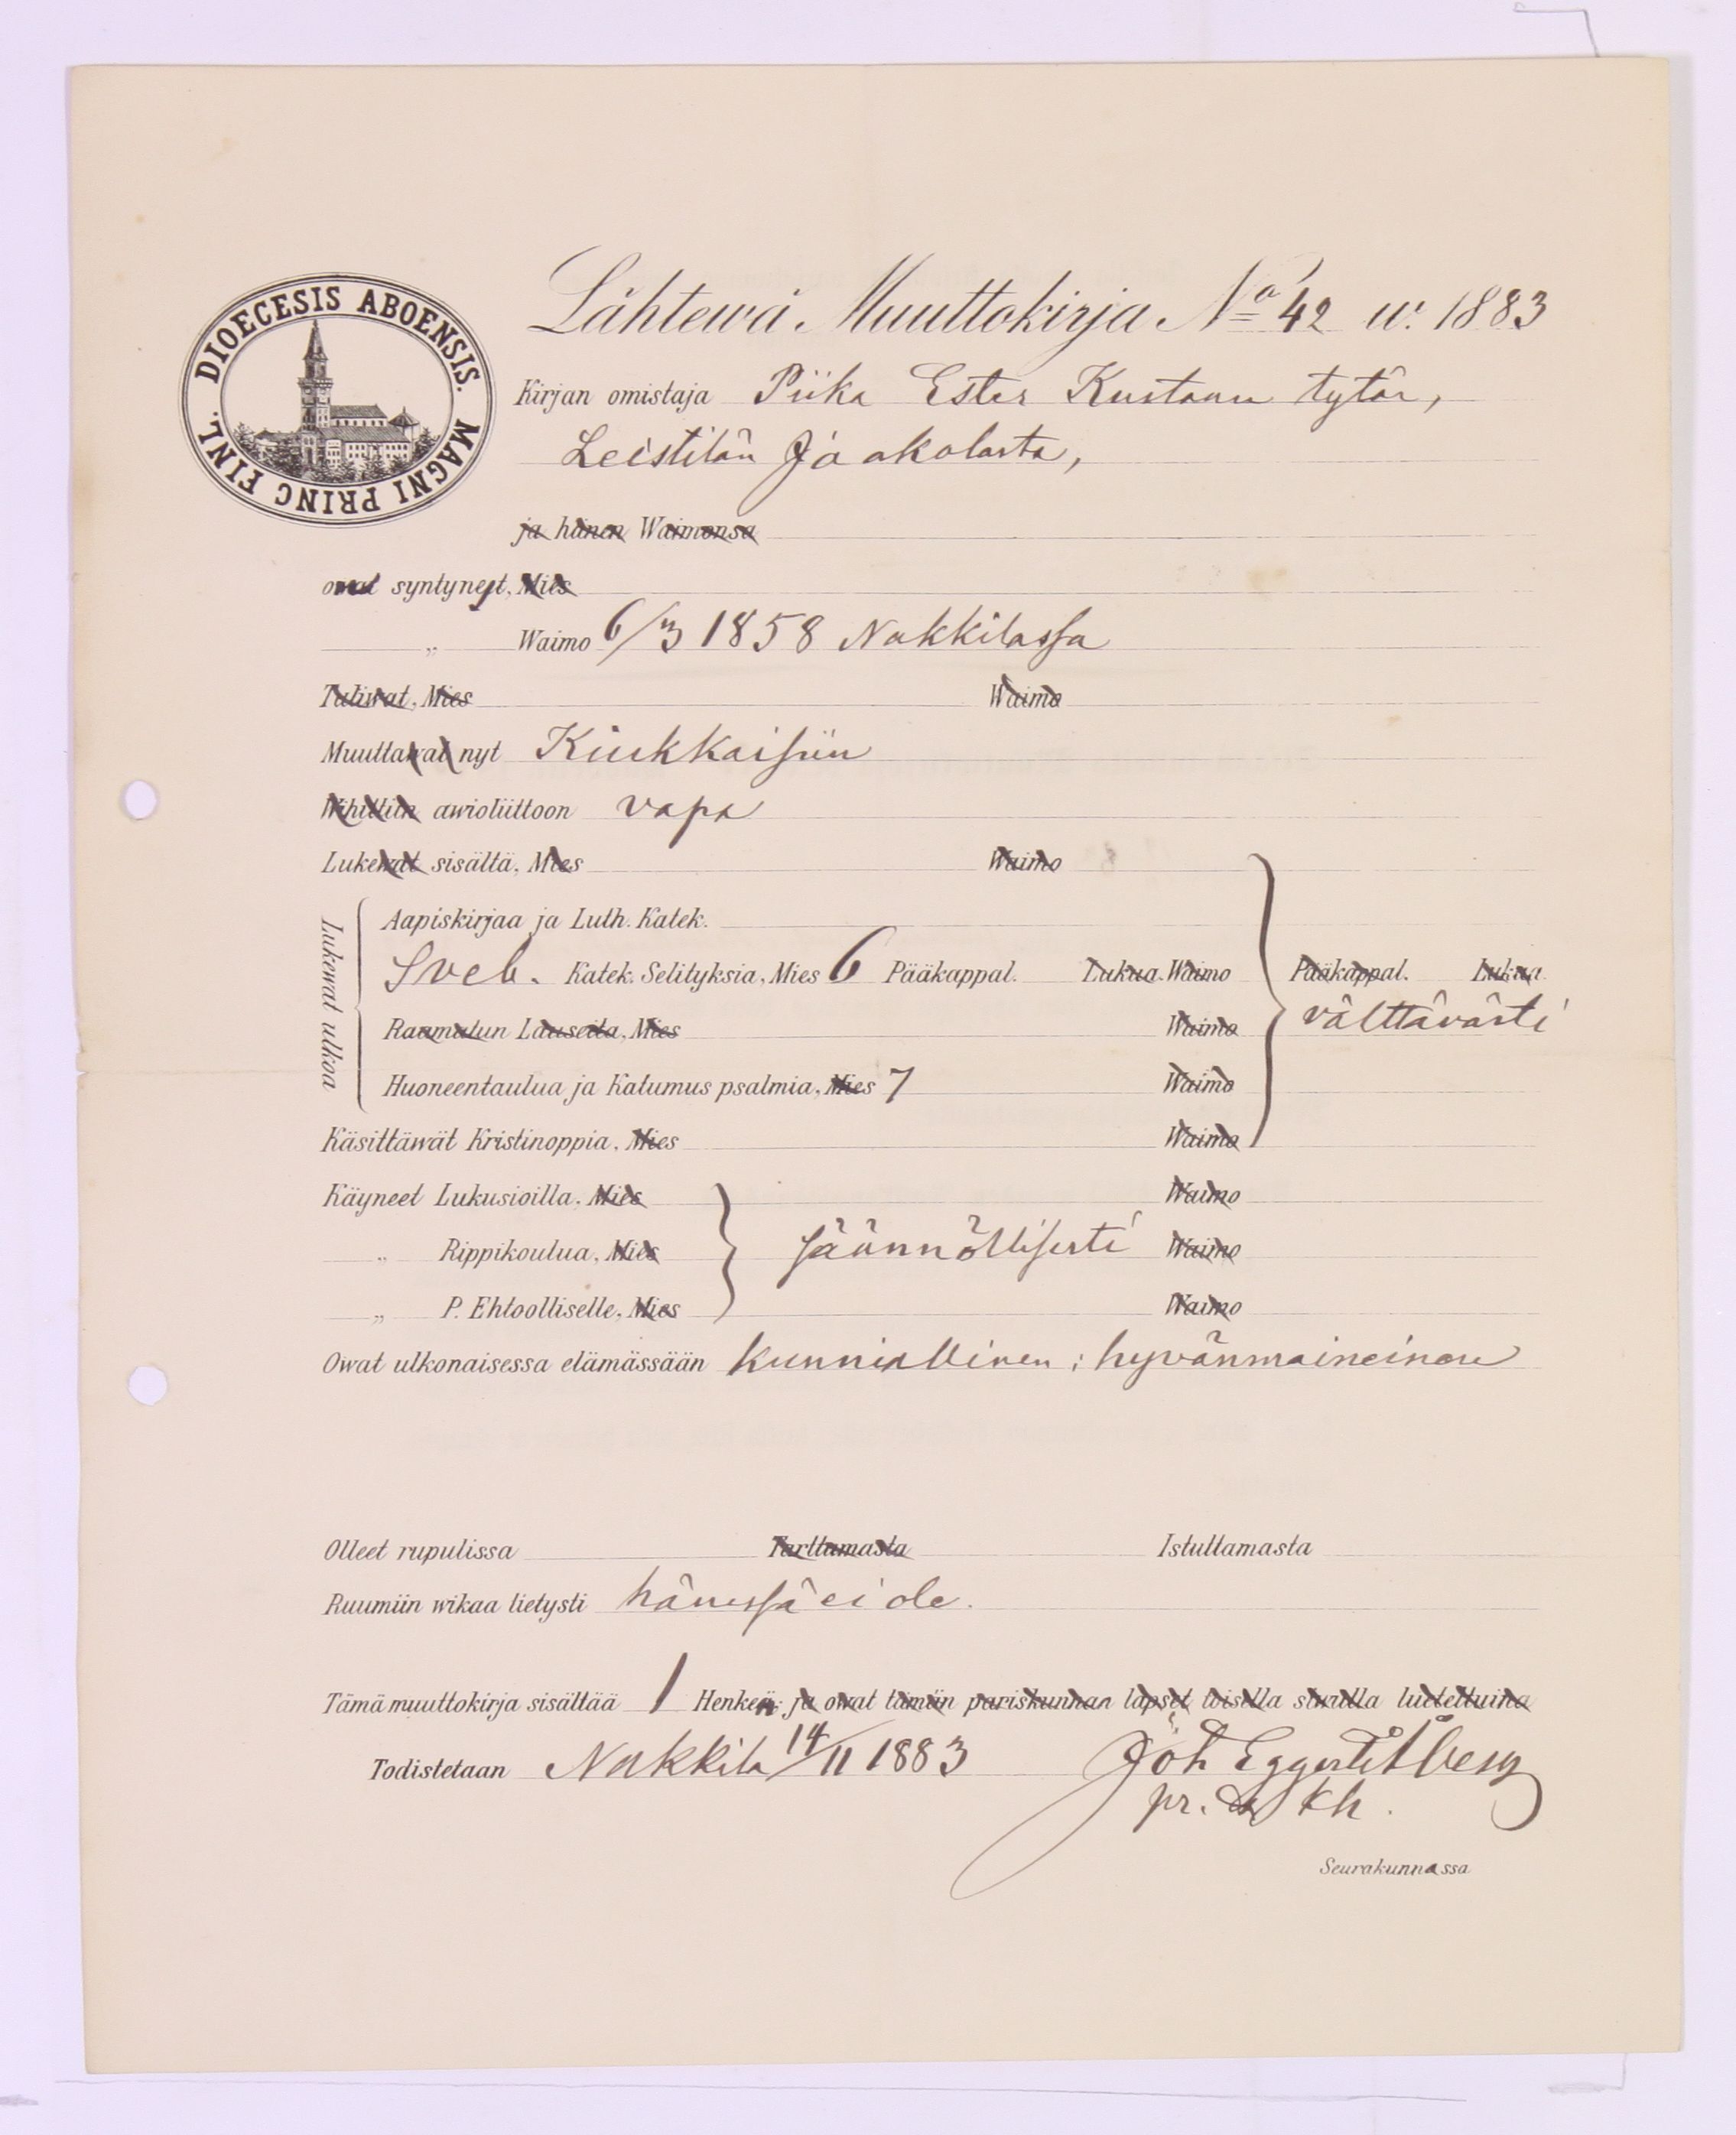 DIOECESIS ABOENSIS. MAGNI PRINC FINL.
Lähtewä Muuttokirja No 42 w. 1883
Kirjan omistaja Piika Ester Kustaan tytär,
Leistilän Jaakolasta,
ja hänen Waimonsa
owat syntyneet, Mies
„ Waimo 6/3 1858 Nakkilassa
Tuliwat, Mies Waimo
Muuttawat nyt Kiukkaisiin
Wihittiin awioliittoon vapa
Lukewat sisältä, Mies Waimo
Lukewat ulkoa
Aapiskirjaa ja Luth. Katek.
Sveb. Katek. Selityksiä, Mies 6 Pääkappal. Lukua. Waimo Pääkappal. Lukua.
Raamatun Lauseita, Mies Waimo välttävästi
Huoneentaulua ja Katumus psalmia, Mies 7 Waimo
Käsittäwät Kristinoppia, Mies Waimo
Käyneet Lukusioilla, Mies Waimo
„ Rippikoulua, Mies säännöllisesti Waimo
„ P. Ehtoolliselle, Mies Waimo
Owat ulkonaisessa elämässään kunniallinen; hyvänmaineinen
Olleet rupulissa Tarttumasta Istuttamasta
Ruumiin wikaa tietysti hänessä ei ole.
Tämä muuttokirja sisältää 1 Henkeä; ja owat tämän pariskunnan lapset toisella siwulla luetettuina
Todistetaan Nakkila 14/11 1883 Joh
pr. kh.
Seurakunnassa